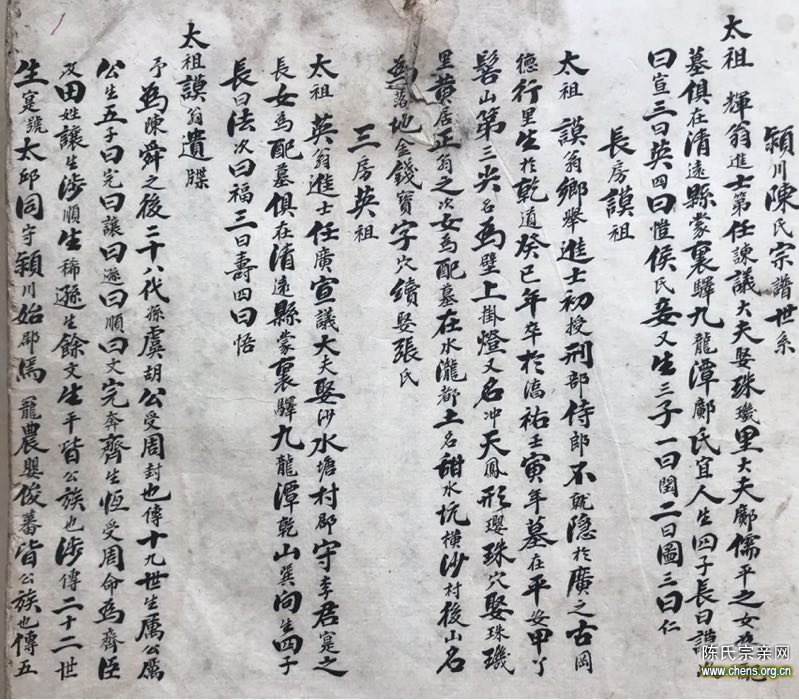 穎川陳氏宗譜世系
太祖 輝翁進士第任諫議大夫娶珠璣里大夫鄺儒平之女為
墓俱在清遠縣蒙裏驛九龍潭鄺氏宜人生四子長曰謨
曰宣三曰英四曰愷侯氏妾又生三子一曰閏二曰圖三曰仁
長房謨祖
太祖 謨翁鄉舉進士初授刑部侍郎不就隱於廣之古岡
德行里生於乾道癸巳年卒於滈祐壬寅年墓在平安甲丫
髻山第三尖名為壁上掛燈又名冲天鳳形瓔珠穴娶珠璣
里黃居正翁之次女為配墓在水瀧都土名甜水坑橫沙村後山名
為落地金錢寶字穴續娶張氏
三房英祖
太祖 英翁進士任廣宣議大夫娶沙水塘村郡守李君寔之
長女為配墓俱在清遠縣蒙裏驛九龍潭乾山巽向生四子
長曰法次曰福三曰壽四曰悟
太祖謨翁遺牒
予為陳舜之後二十八代孫虞胡公受周封也傳十九世生厲公厲
公生五子曰完曰讓曰遜曰順曰文完奔齊生恆受周命為齊臣
及田姓讓生涉順生稀遜生餘文生平皆公族也涉傳二十二世
生寔號太邱同守穎川始郡焉寵農嬰俊蕃皆公族也傳五
陈氏宗亲网
www.chens.org.cn